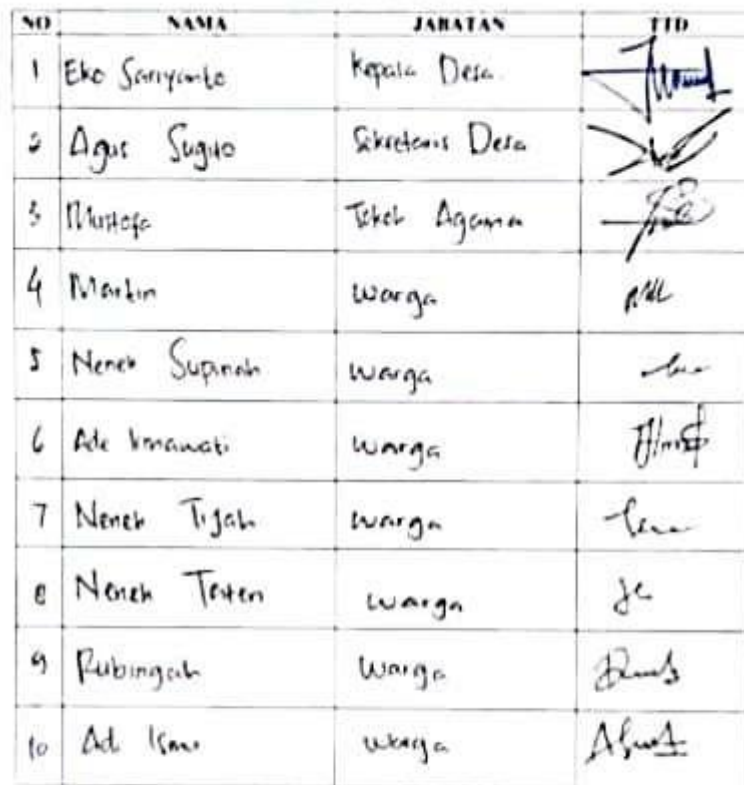 NO NAMA JABATAN TTD
1 Eko Sariyanto Kepala Desa
2 Agus Sugito Sekretaris Desa
3 Mustofa Tokoh Agama
4 Warga
5 Nenek Supinah Warga
6 Ade Irmawati Warga
7 Nenek Tijah Warga
8 Nenek Warga
9 Rubingah Warga
10 Warga